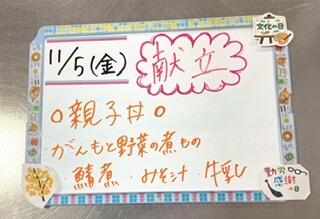 文化の日
11/5(金) 献立
○親子丼○
・がんもと野菜の煮もの
・鯖煮 ・みそ汁 ・牛乳
勤労
感謝
の日